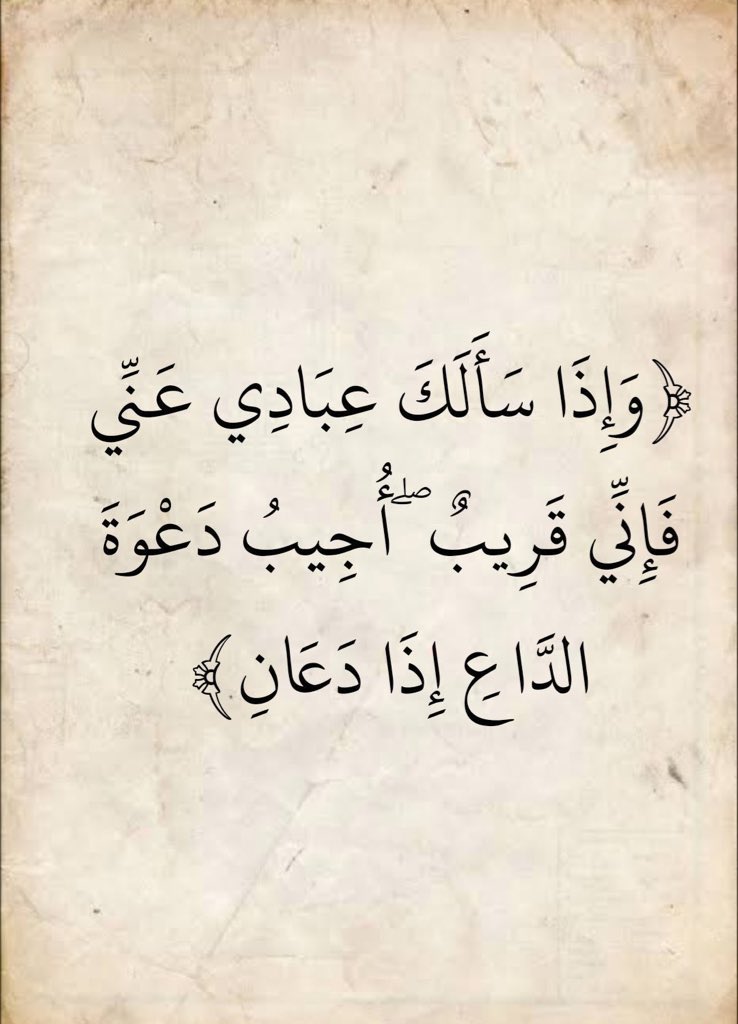 ﴿وَإِذَا سَأَلَكَ عِبَادِي عَنِّي
فَإِنِّي قَرِيبٌ ۖ أُجِيبُ دَعْوَةَ
الدَّاعِ إِذَا دَعَانِ﴾